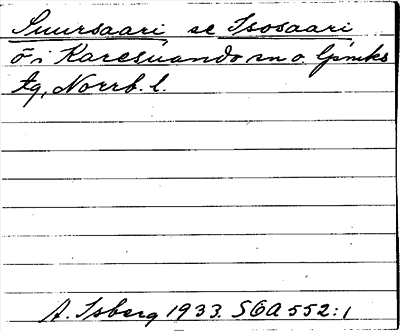 Suursaari se Isosaari
ö i Karesuando sn o. lpmks
tg, Norrb. l.
A. Isberg 1933. SOA 552:1